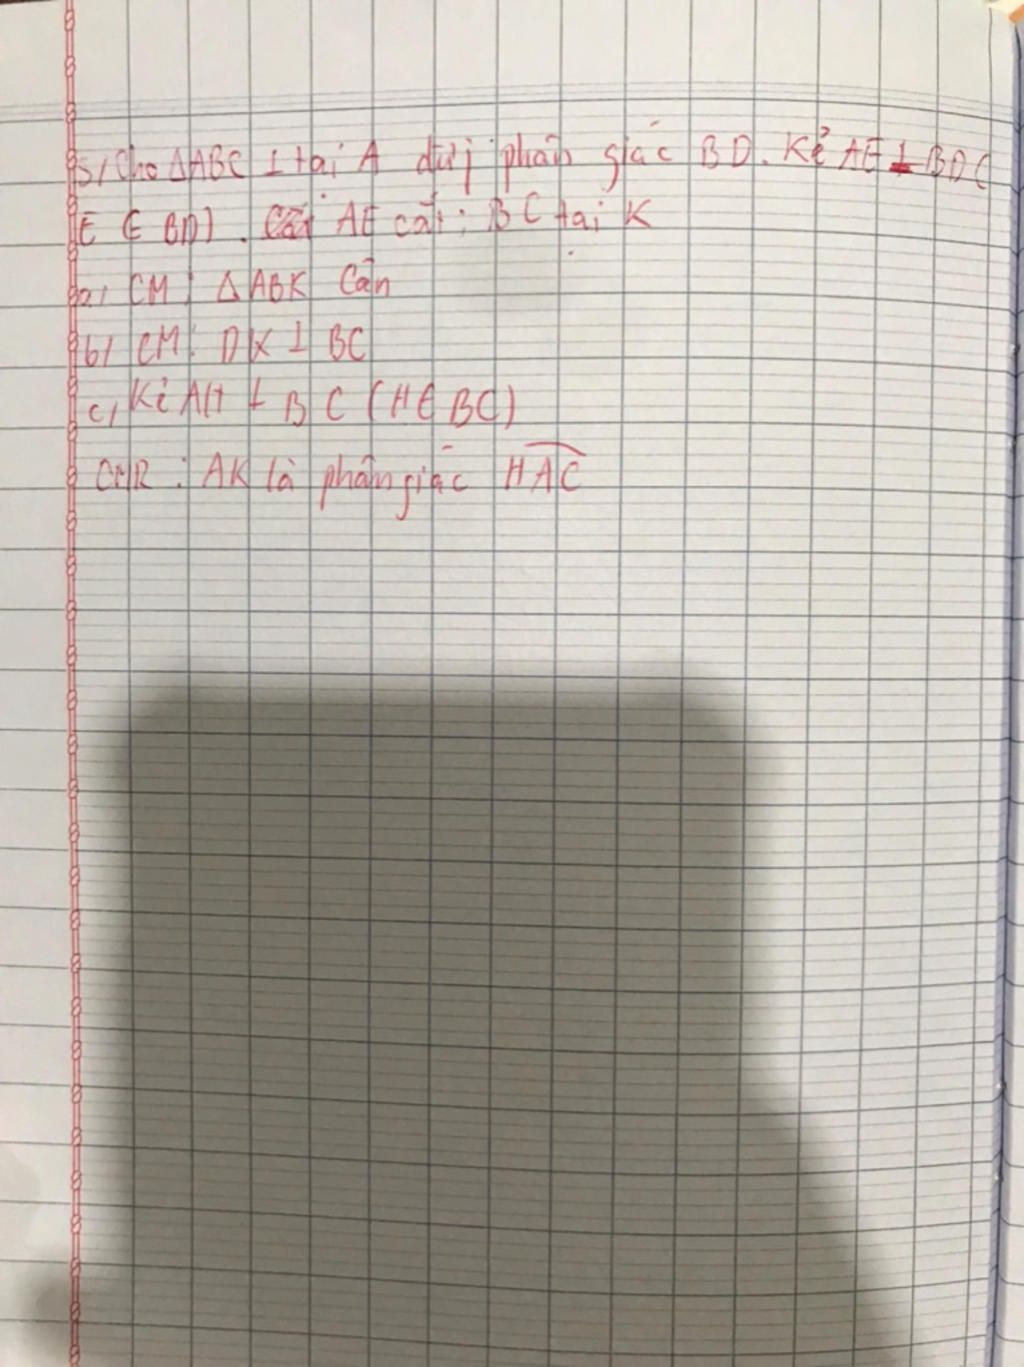 5/ Cho △ABC ⊥ tại A đườj phân giác BD. Kẻ AE ⊥ BD (
E ∈ BD). AE cắt: BC tại K
a/ CM: △ ABK Cân
b/ CM: DK ⊥ BC
c, Kẻ AH ⊥ BC (H∈ BC)
CMR: AK là phân giác HAC